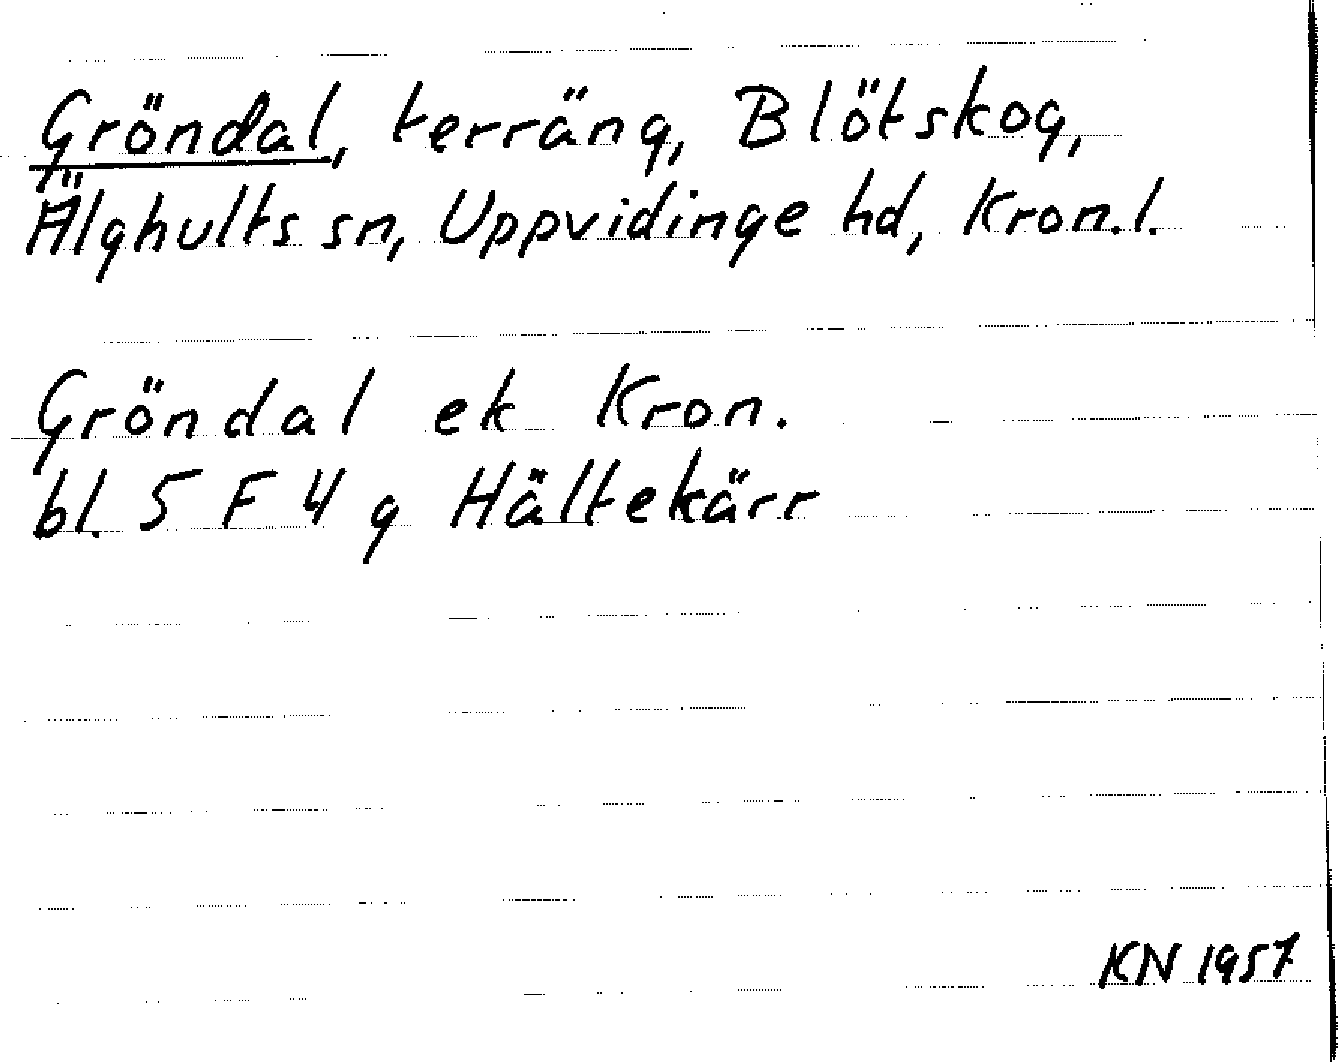 Gröndal, terräng, Blötskog,
Älghults sn, Uppvidinge hd, Kron.l.
Gröndal ek Kron.
bl. 5 F 4 g Hältekärr
KN 1957